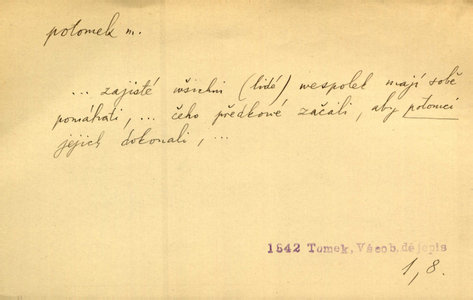 potomek m.
... zajisté všichni (lidé) vespolek mají sobě
pomáhati, ... čeho předkové začali, aby potomci
jejich dokonali, ...
1842 Tomek, Všeob. dějepis
1, 8.